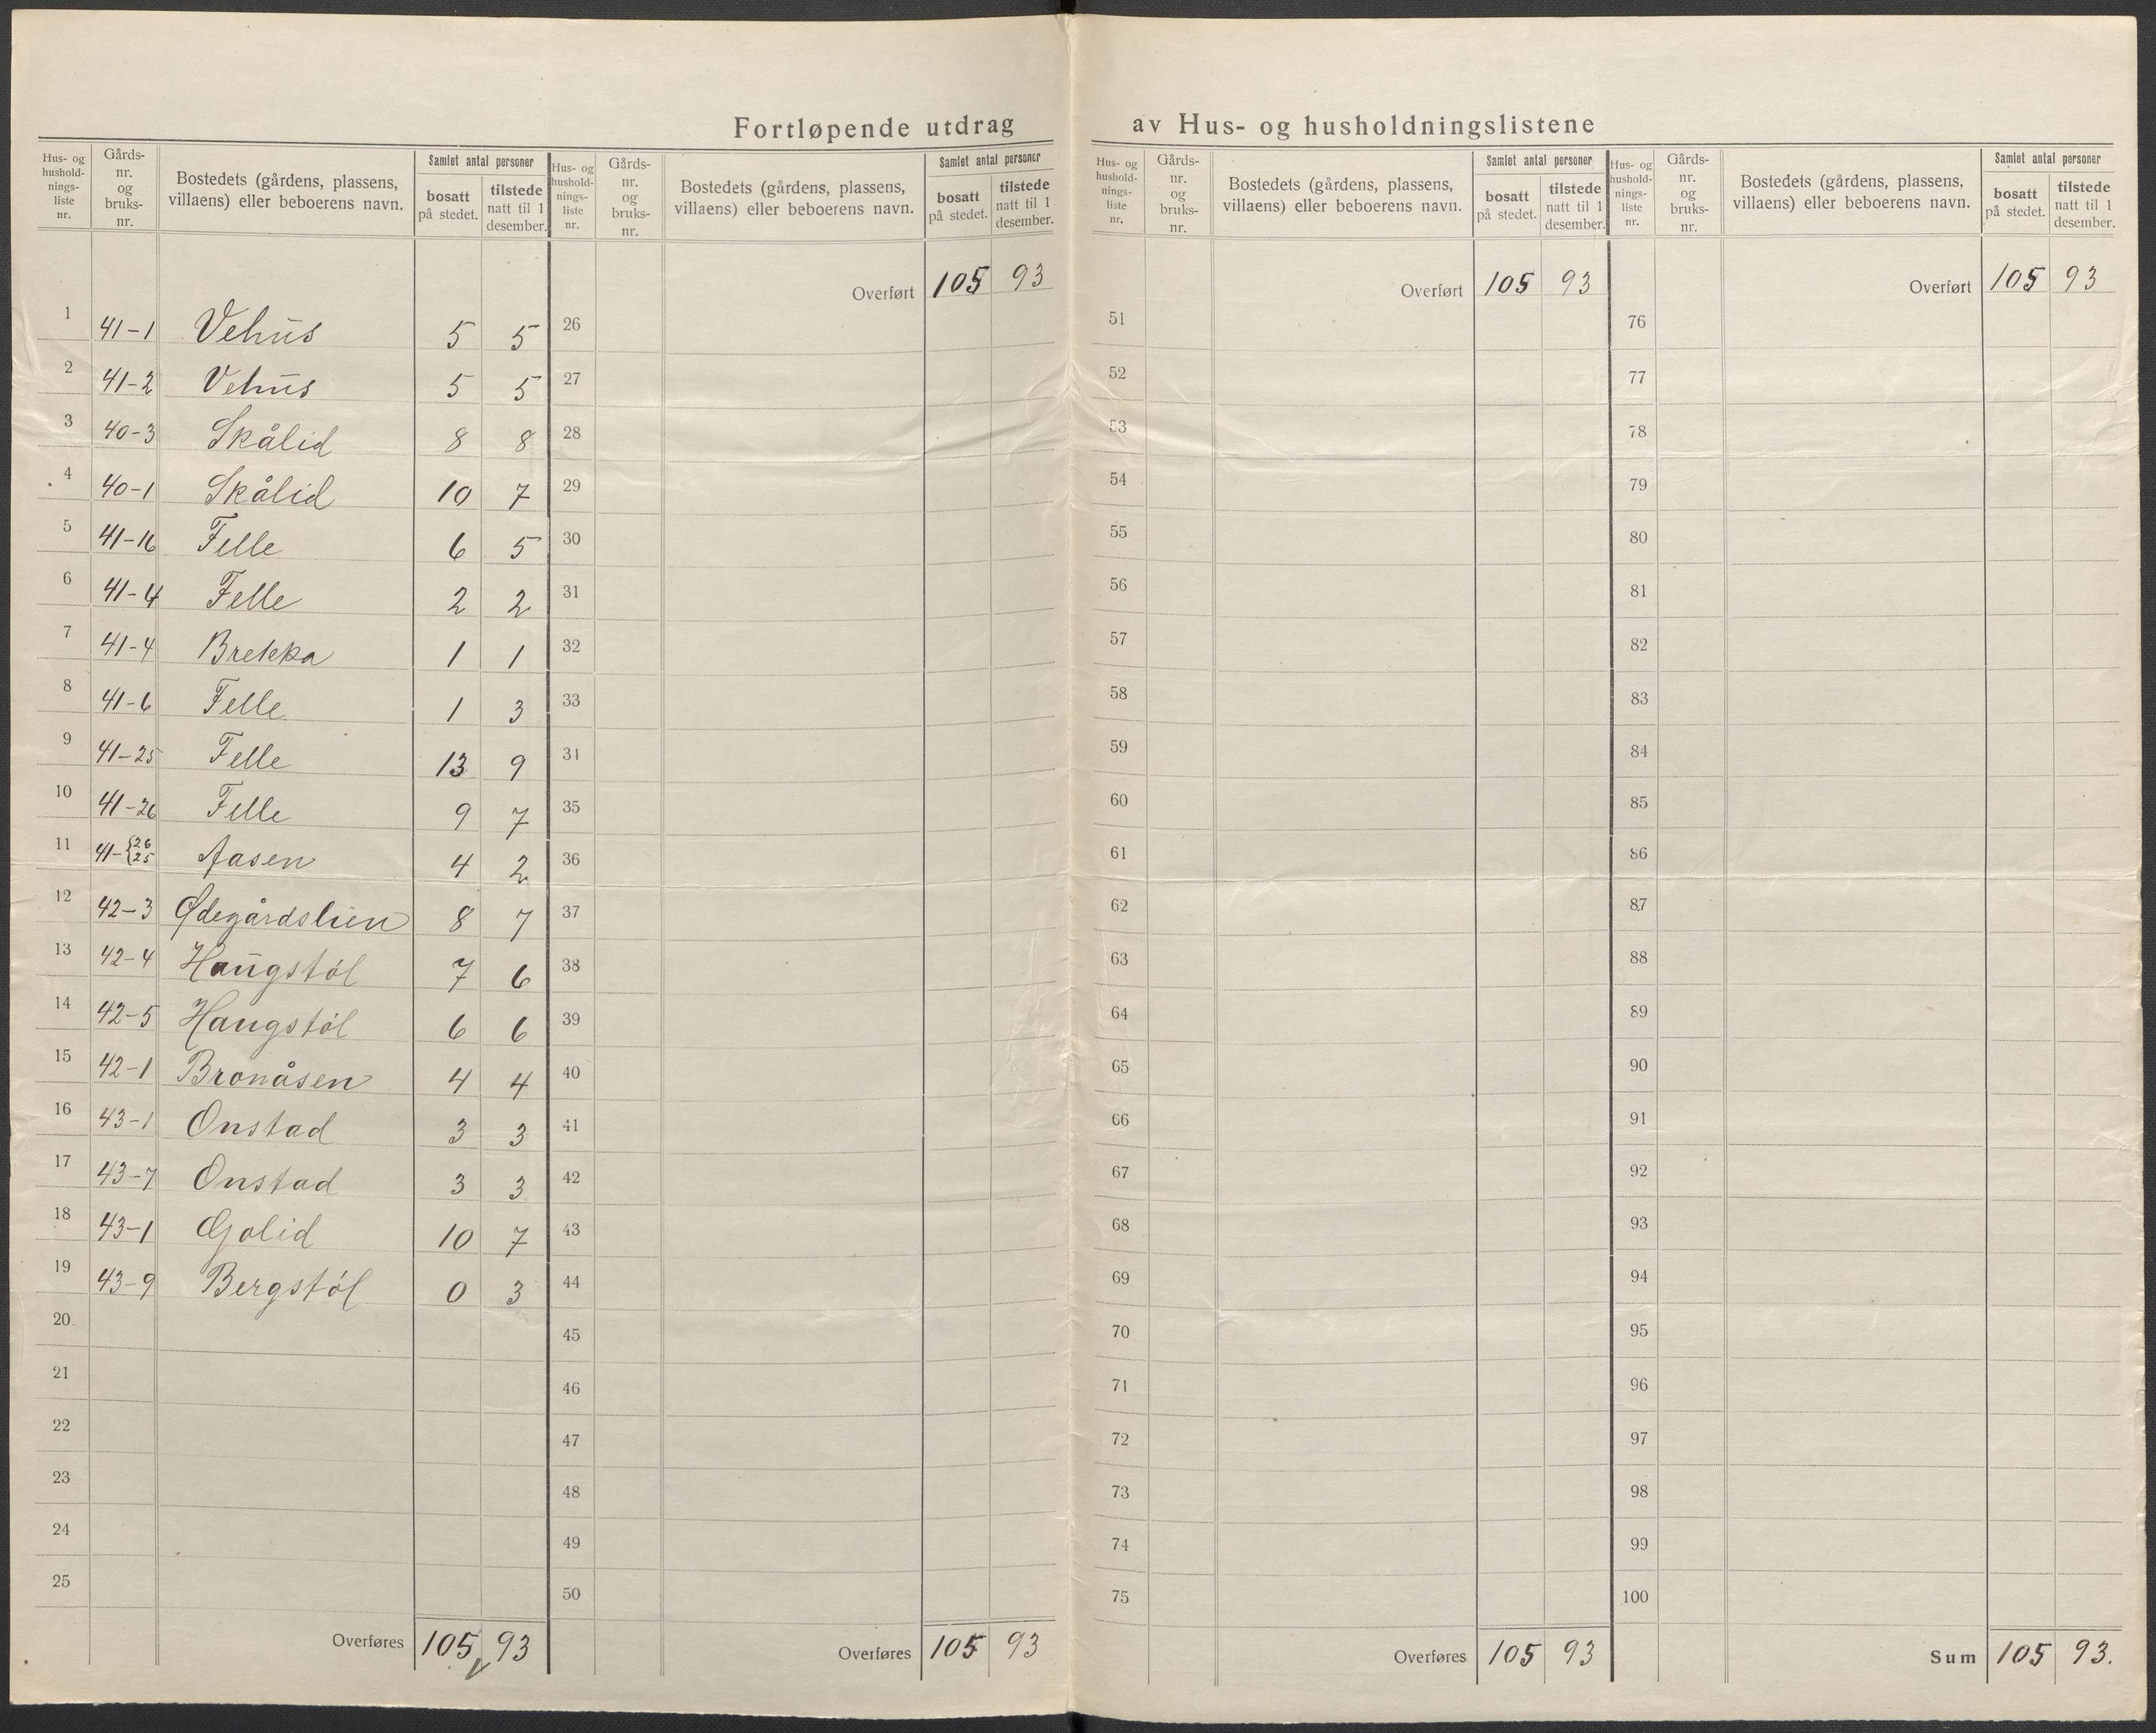 Fortløpende utdrag av Hus- og husholdningslistene
Hus- og hushold- nings- liste nr. | Gårds- nr. og bruks- nr. | Bostedets (gårdens, plassens, villaens) eller beboerens navn. | Samlet antal personer | bosatt på stedet. | tilstede natt til 1 desember.
1 41-1 Vehus 5 5
2 41-2 Vehus 5 5
3 40-3 Skålid 8 8
4 40-1 Skålid 10 7
5 41-16 Felle 6 5
6 41-4 Felle 2 2
7 41-4 Brekka 1 1
8 41-6 Felle 1 3
9 41-25 Felle 13 9
10 41-26 Felle 9 7
11 41-{26 25 Aasen 4 2
12 42-3 Ødegårdslien 8 7
13 42-4 Haugstøl 7 6
14 42-5 Haugstøl 6 6
15 42-1 Bronåsen 4 4
16 43-1 Onstad 3 3
17 43-7 Onstad 3 3
18 43-1 Golid 10 7
19 43-9 Bergstøl 0 3
20
21
22
23
24
25
Overføres 105 93
Hus- og hushold- nings- liste nr. | Gårds- nr. og bruks- nr. | Bostedets (gårdens, plassens, villaens) eller beboerens navn. | Samlet antal personer | bosatt på stedet. | tilstede natt til 1 desember.
Overført 105 93
26
27
28
29
30
31
32
33
31
35
36
37
38
39
40
41
42
43
44
45
46
47
48
49
50
Overføres 105 93
Hus- og hushold- nings- liste nr. | Gårds- nr. og bruks- nr. | Bostedets (gårdens, plassens, villaens) eller beboerens navn. | Samlet antal personer | bosatt på stedet. | tilstede natt til 1 desember.
Overført 105 93
51
52
53
54
55
56
57
58
59
60
61
62
63
64
65
66
67
68
69
70
71
72
73
74
75
Overføres 105 93
Hus- og hushold- nings- liste nr. | Gårds- nr. og bruks- nr. | Bostedets (gårdens, plassens, villaens) eller beboerens navn. | Samlet antal personer | bosatt på stedet. | tilstede natt til 1 desember.
Overført 105 93
76
77
78
79
80
81
82
83
84
85
86
87
88
89
90
91
92
93
94
95
96
97
98
99
100
Sum 105 93.